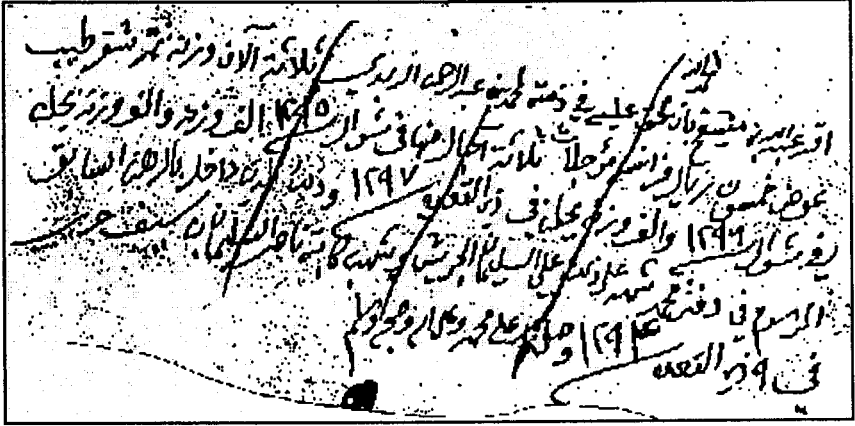 الحمد لله
اقر عبدالله بن مقيبع بان عليه في ذمته لمحمد بن عبدالرحمن الربدي ثلاثة آلاف وزنة تمر شقر طيب
عوض خمسين ريال فرانسه مؤجلات ثلاثة آجال منها في شوال سنة ١٢٩٥ الف وزنه والف وزنة يحلن
في شوال سنة ١٢٩٦ والف وزنة يحلن في ذي القعده ١٢٩٧ وذلك الدين داخل بالرهن السابق
المرسوم في دفتر محمد شهد على ذلك علي السليمان الجريش وشهد به كاتبه ناصر السليمان بن سيف حرر
في ٩ ذي القعده ١٢٩٤ وصلى الله على محمد وعلى اله وصحبه وسلم